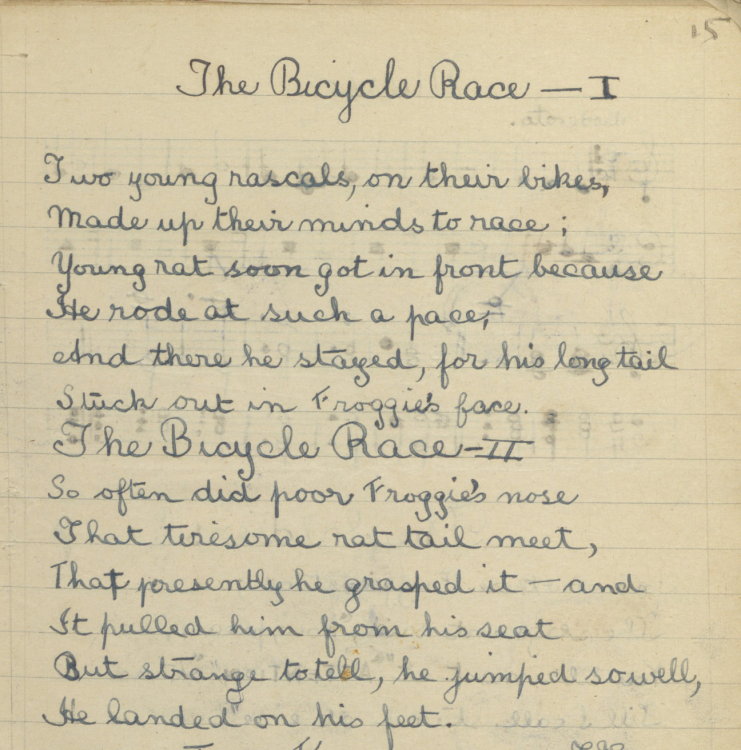 15
The Bicycle Race — I
Two young rascals, on their bikes,
Made up their minds to race;
Young rat soon got in front because
He rode at such a pace;
And there he stayed, for his long tail
Stuck out in Froggie's face.
The Bicycle Race - II
So often did poor Froggie's nose
That tiresome rat tail meet,
That presently he grasped it — and
It pulled him from his seat
But strange to tell, he jumped so well,
He landed on his feet.